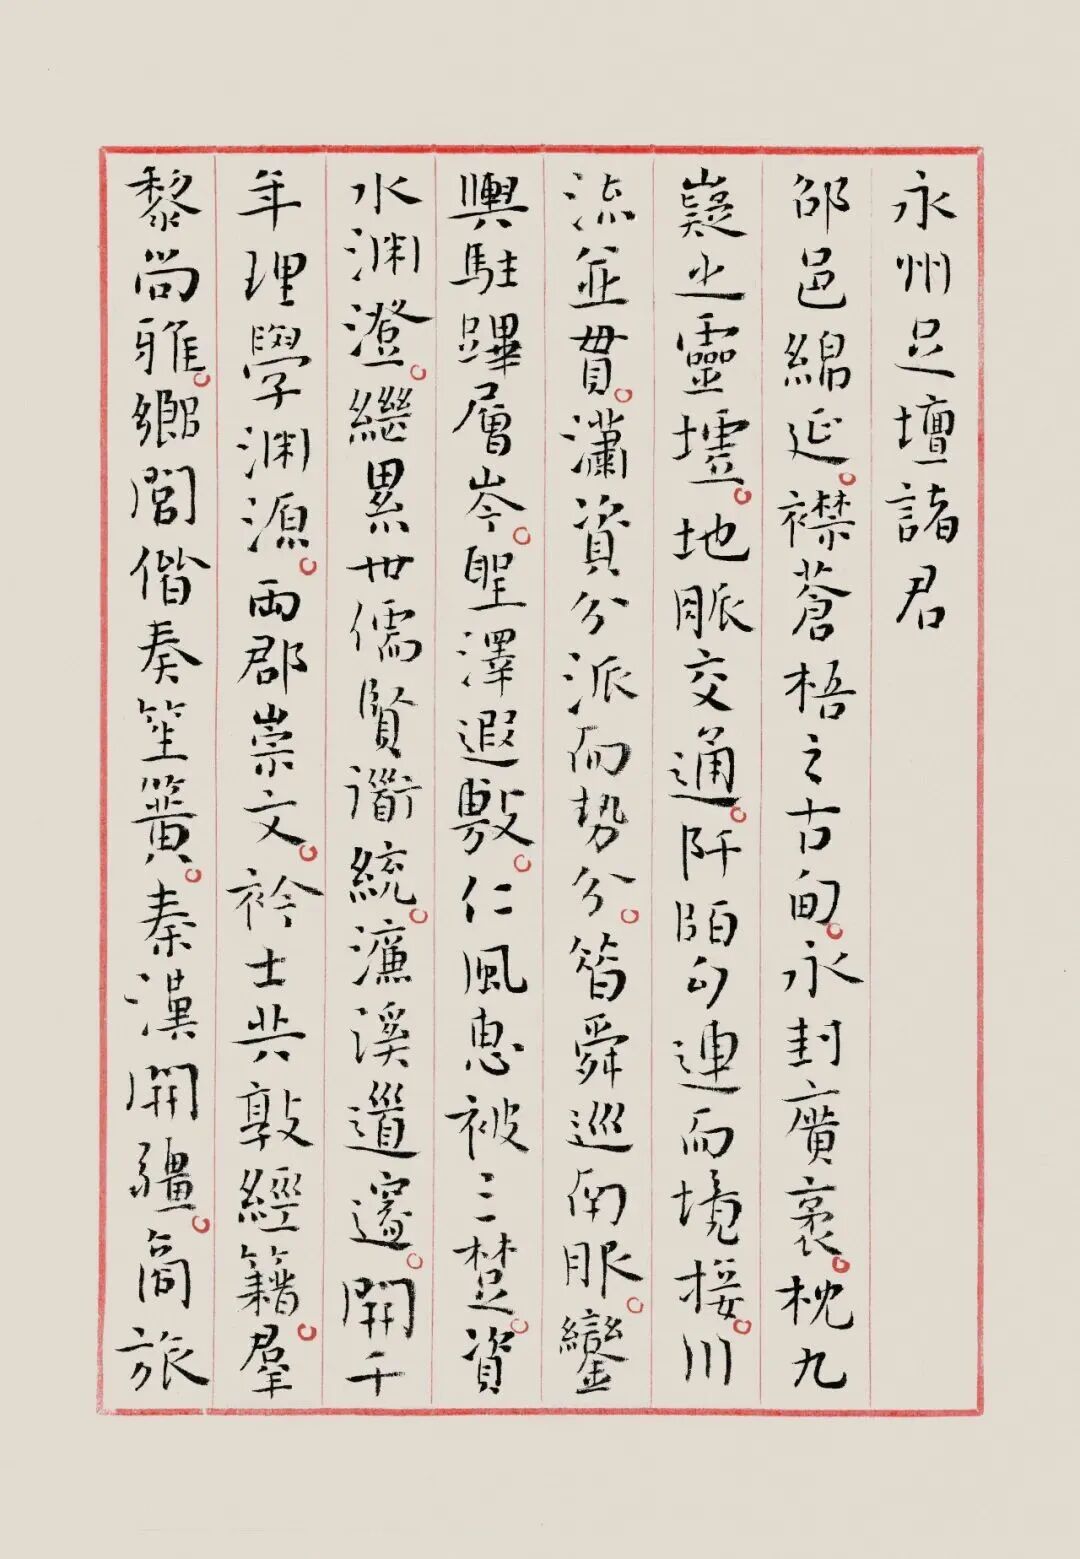 永州足壇諸君
邵邑綿延。襟蒼梧之古甸。永封廣袤。枕九
嶷之靈墟。地脈交通。阡陌勾連而境接。川
流並貫。瀟資分派而勢分。昔舜巡南服。鑾
輿駐蹕層岑。聖澤遐敷。仁風惠被三楚。資
水淵澄。繼累世儒賢衟統。濂溪衟邃。開千
年理學淵源。兩郡崇文。衿士共敦經籍。羣
黎尚雅。鄉閭偕奏笙簧。秦漢開疆。商旅